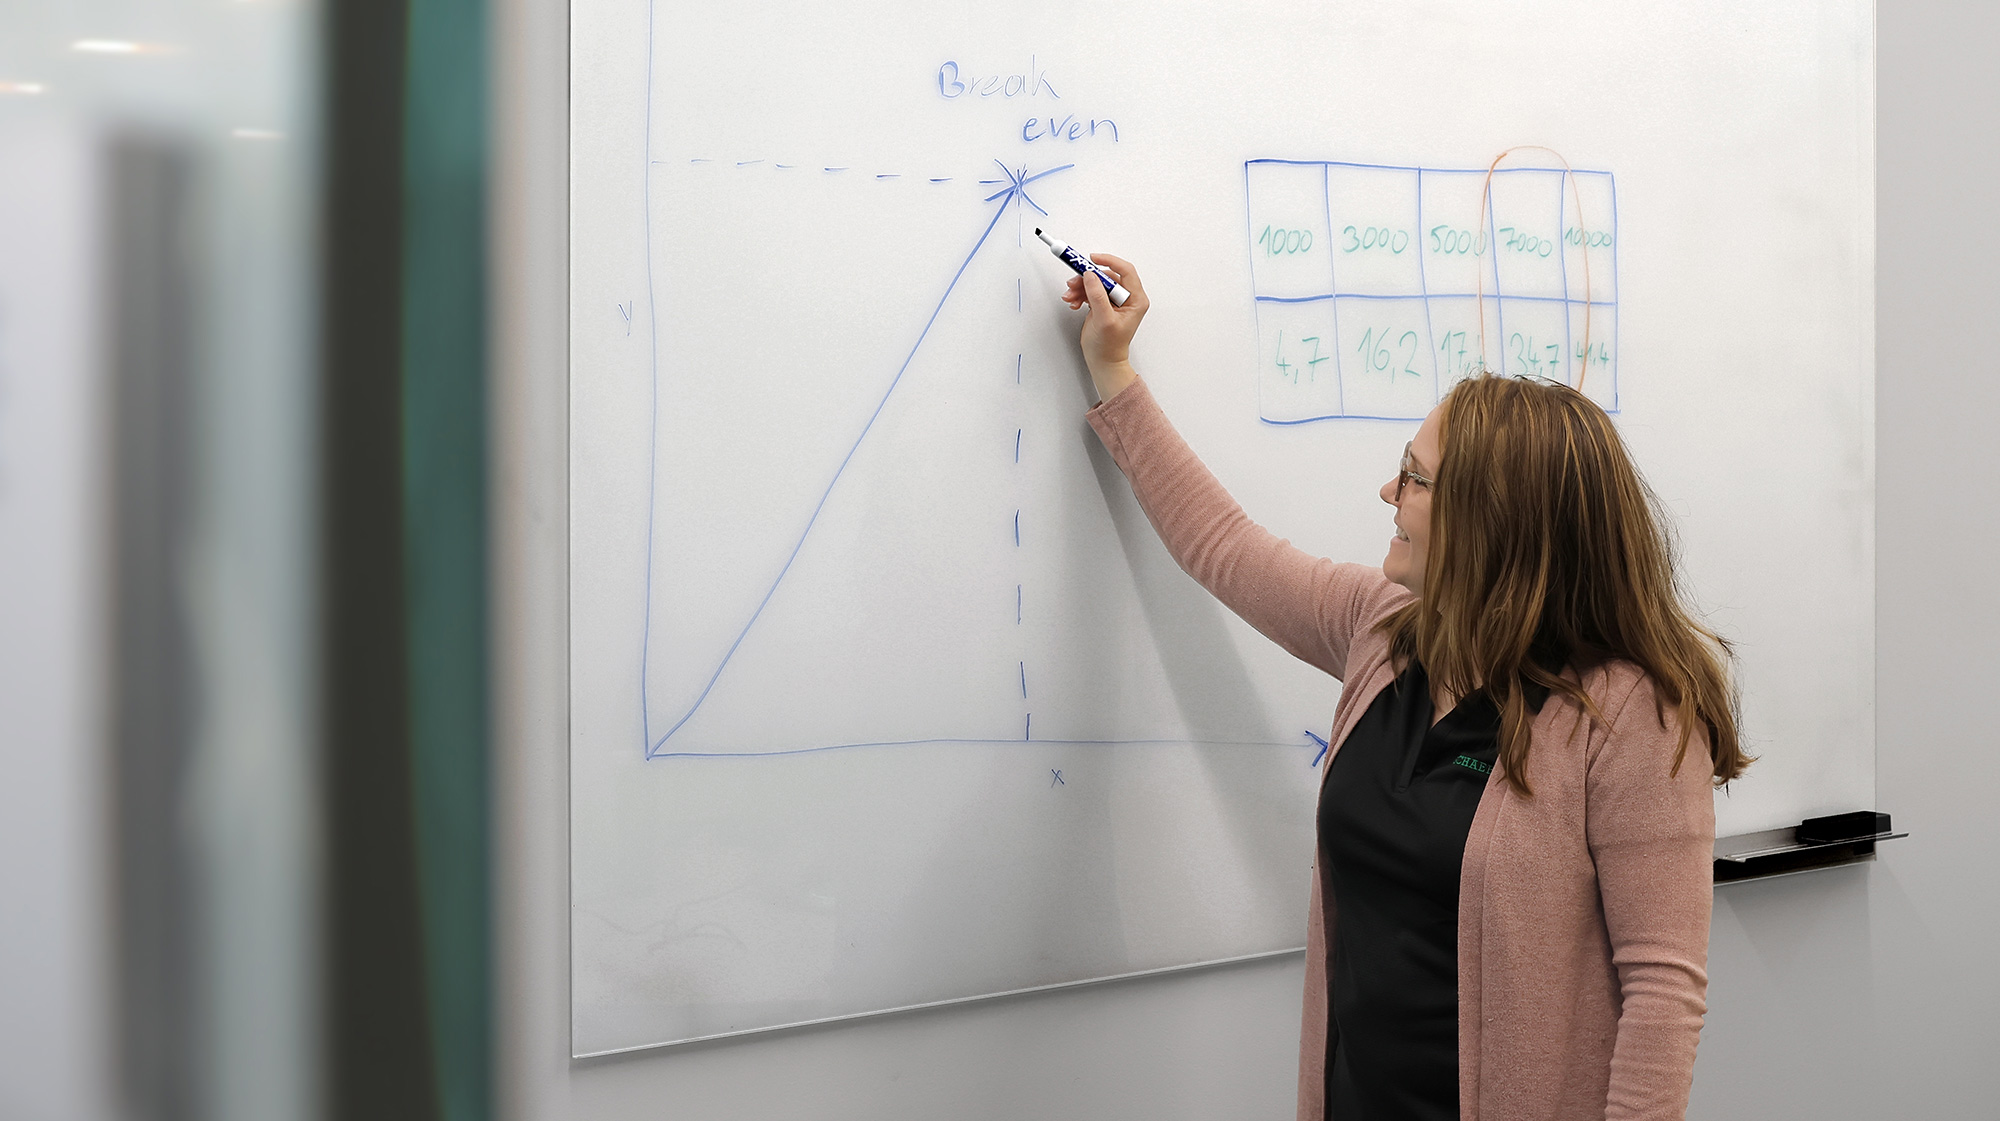 Break
even
y
1000 3000 5000 7000 10000
4,7 16,2 34,7 41,4
x
EXPO